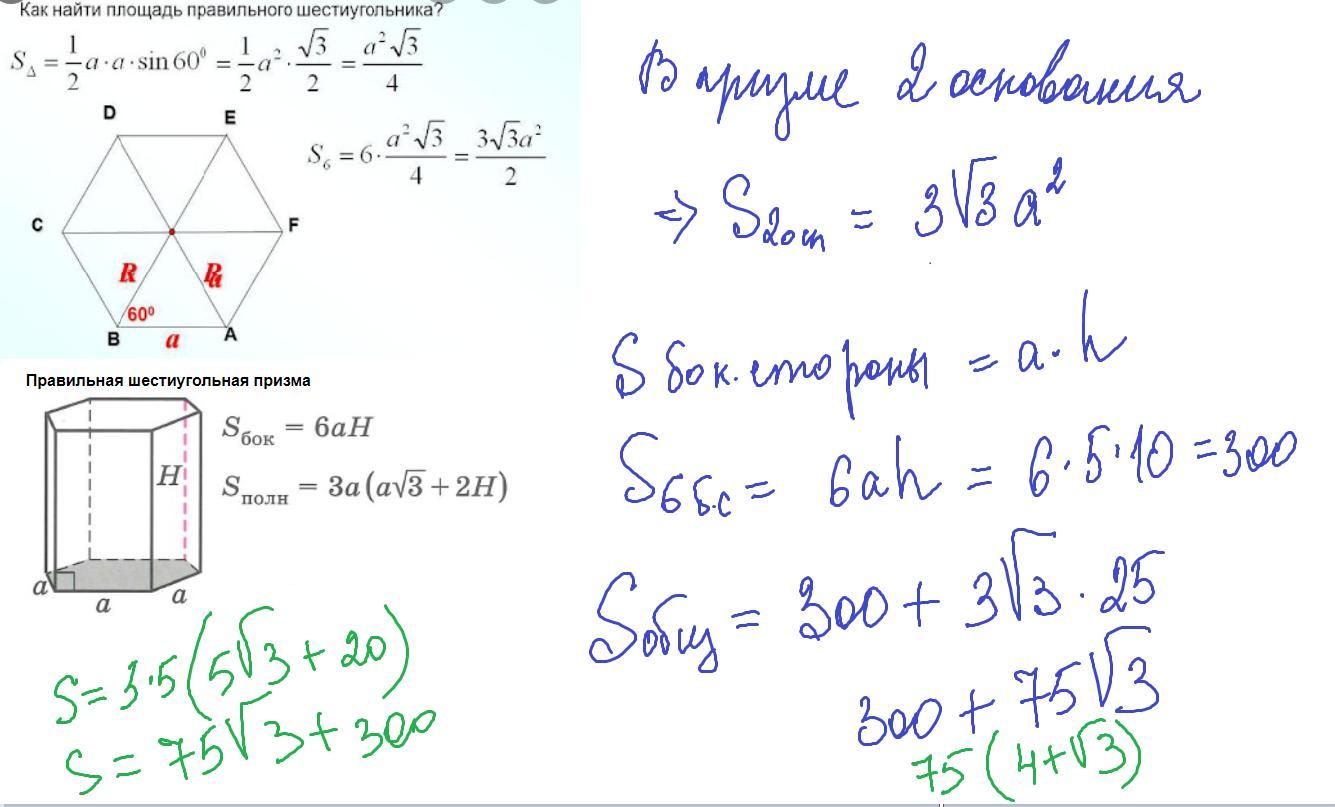 Как найти площадь правильного шестиугольника?
S_Δ = 1/2 a · a · sin 60⁰ = 1/2 a² · √3/2 = a²√3/4
D
E
S₆ = 6 · a²√3/4 = 3√3a²/2
C
F
R
60⁰
B
a
A
Правильная шестиугольная призма
S_бок = 6aH
H
S_полн = 3a(a√3 + 2H)
a
a
a
S = 3·5(5√3 + 20)
S = 75√3 + 300
В призме 2 основания
=> S_2осн = 3√3 a²
S бок. стороны = a · h
S_6б.с = 6ah = 6·5·10 = 300
S_общ = 300 + 3√3 · 25
300 + 75√3
75(4+√3)